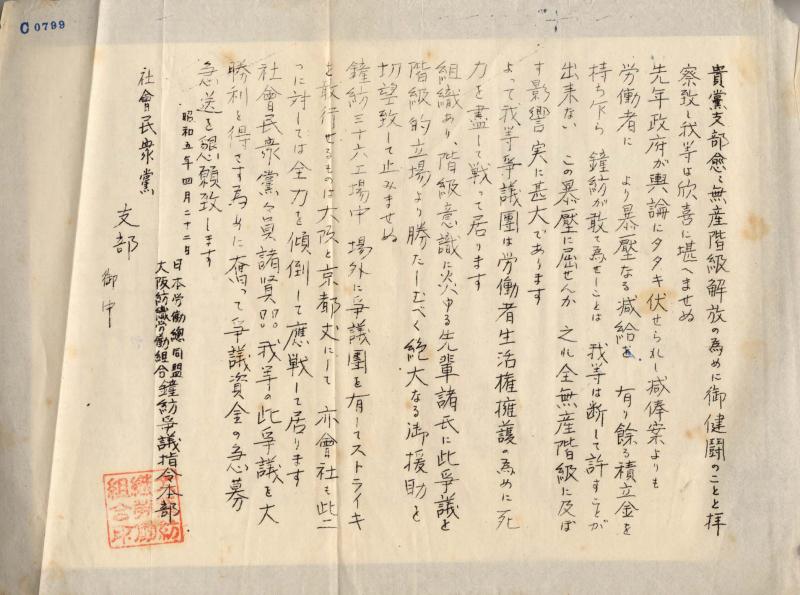 C 0799
貴黨支部愈々無産階級解放の為めに御健闘のことと拝
察致し我等は欣喜に堪へませぬ
先年政府が輿論にタタキ伏せられし減俸案よりも
労働者に より暴圧なる減給を 有り餘る積立金を
持ち乍ら 鐘紡が敢て為せしことは 我等は断して許すことが
出来ない この暴圧に屈せんか 之れ全無産階級に及ぼ
す影響 実に甚大であります
よって我等爭議團は労働者生活権擁護の為めに死
力を盡して戦って居ります
組織あり、階級意識に燃ゆる先輩諸氏に此爭議を
階級的立場より勝たしむべく絶大なる御援助を
切望致して止みませぬ
鐘紡三十六工場中 場外に爭議團を有してストライキ
を敢行せるものは大阪と京都丈にして 亦會社も此二
つに対しては全力を傾倒して應戦して居ります
社會民衆黨々員諸賢 我等の此爭議を大
勝利を得さす為めに奮って爭議資金の急募
急送を懇願致します
昭和五年四月二十二日
日本労働總同盟
大阪紡織労働組合 鐘紡爭議指令本部
社會民衆黨 支部 御中